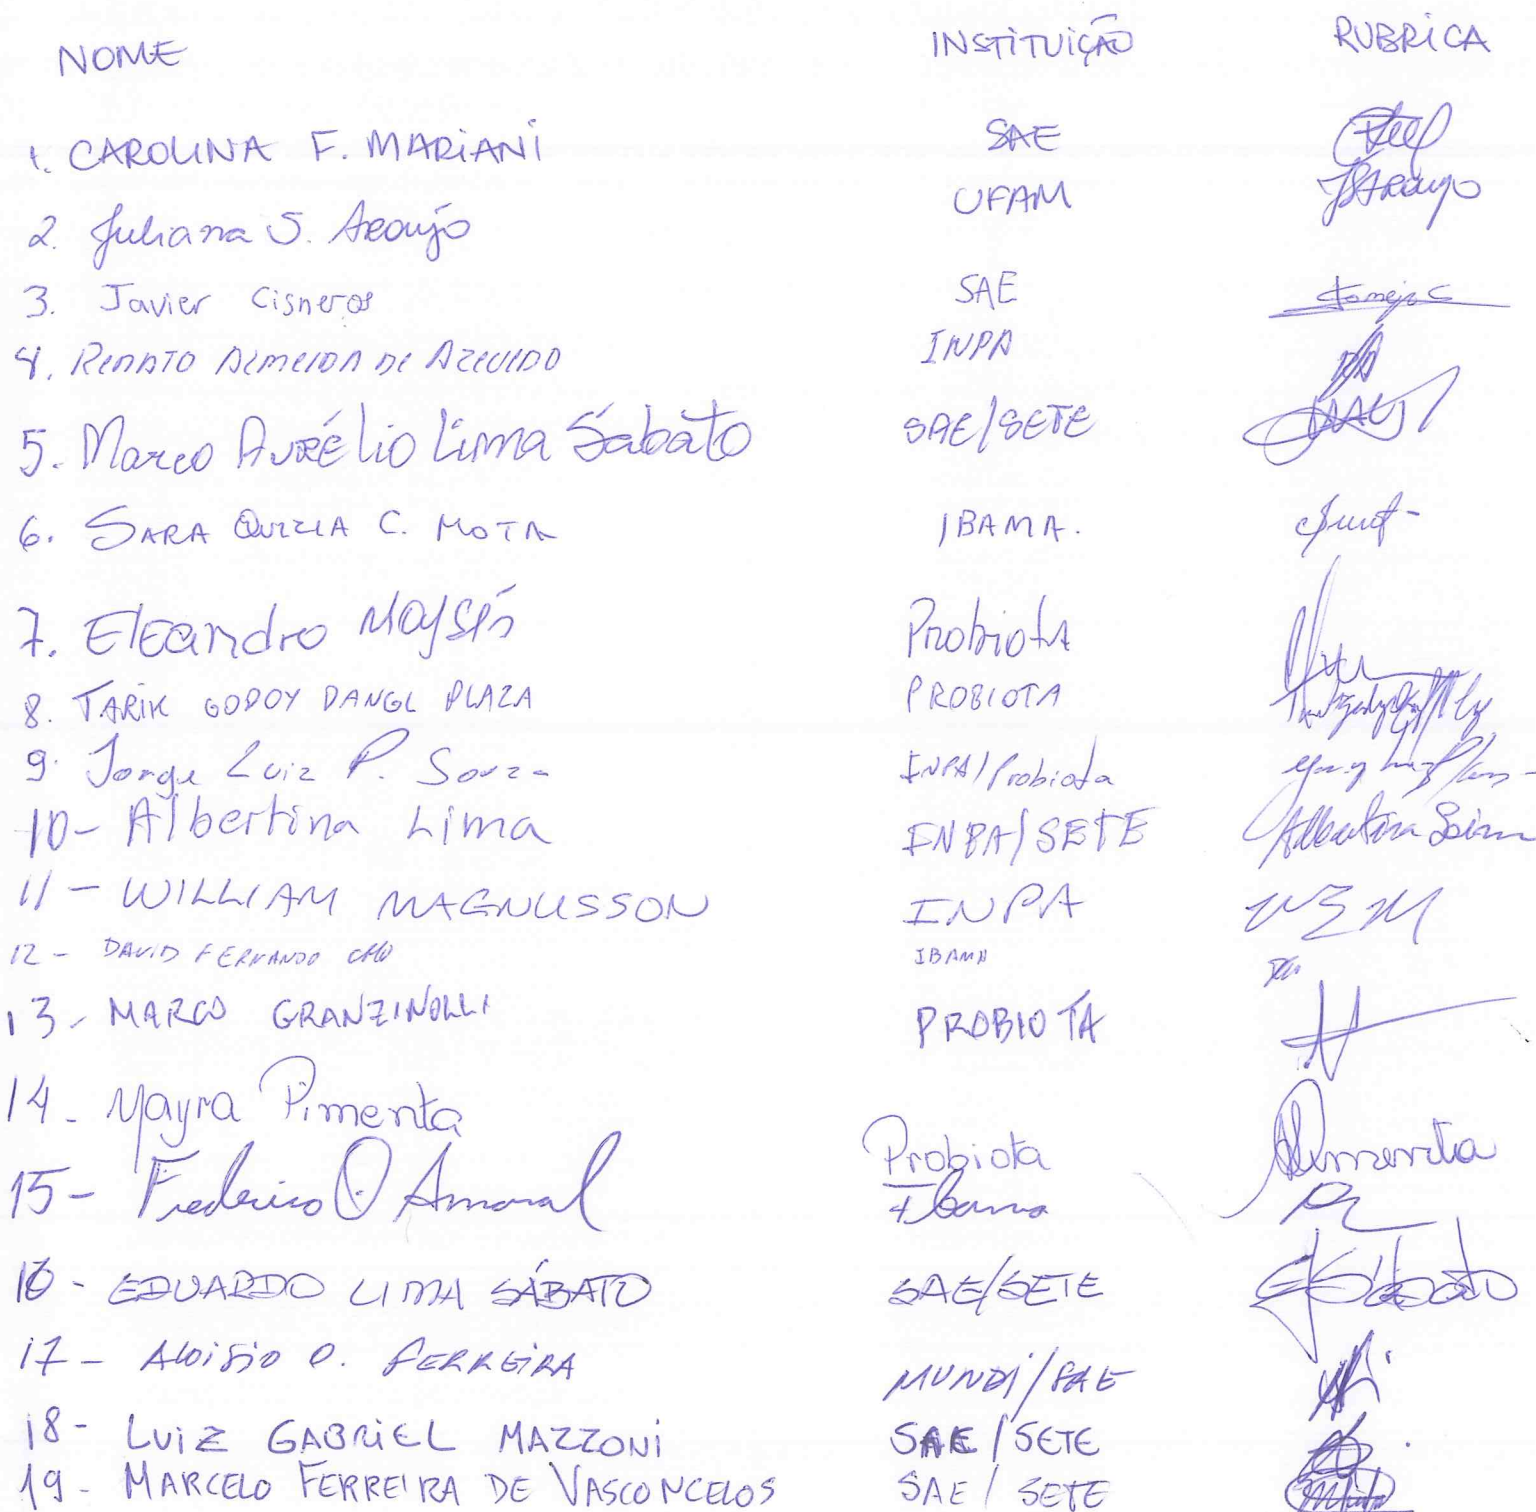 NOME INSTITUIÇÃO RUBRICA
1. CAROLINA F. MARIANI SAE
2. Juliana S. Araújo UFAM JSAraujo
3. Javier Cisneros SAE
4. RENATO ALMEIDA DE AZEVEDO INPA
5. Marco AURÉLIO Lima Sábato SAE/SETE
6. SARA QUIZIA C. MOTA IBAMA.
7. Eleandro Moysés Probiota
8. TARIK GODOY DANGL PLAZA PROBIOTA
9. Jorge Luiz P. Souza INPA/Probiota
10- Albertina Lima INPA/SETE Albertina Lima
11- WILLIAM MAGNUSSON INPA WEM
12- DAVID FERNANDO IBAMA
13- MARCO GRANZINOLLI PROBIOTA
14- Mayra Pimenta Probiota Pimenta
15- Frederico O. Amaral Ibama
16- EDUARDO LIMA SÁBATO SAE/SETE ESábato
17- Aloisio O. FERREIRA MUNDI/SAE
18- LUIZ GABRIEL MAZZONI SAE/SETE
19- MARCELO FERREIRA DE VASCONCELOS SAE/SETE